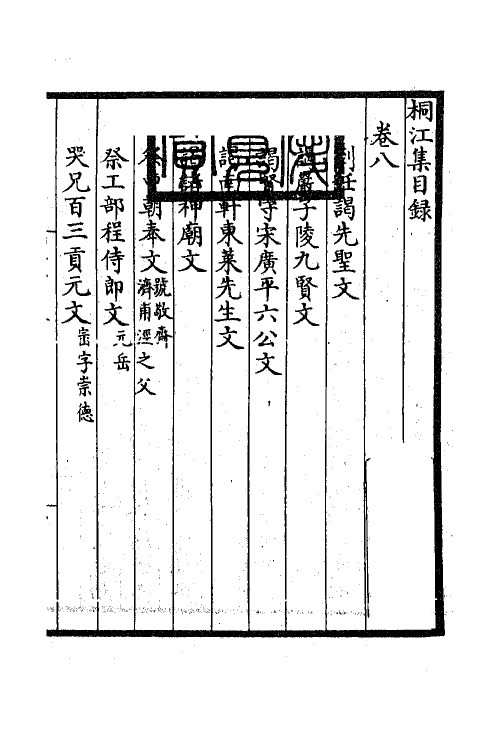 桐江集目録
卷八
到任謁先聖文
謁嚴子陵九賢文
謁賢守宋廣平六公文
謁南軒東萊先生文
神廟文
朝奉文號敬齋濟甫涇之父
祭工部程侍郎文元岳
哭兄百三貢元文密字崇德